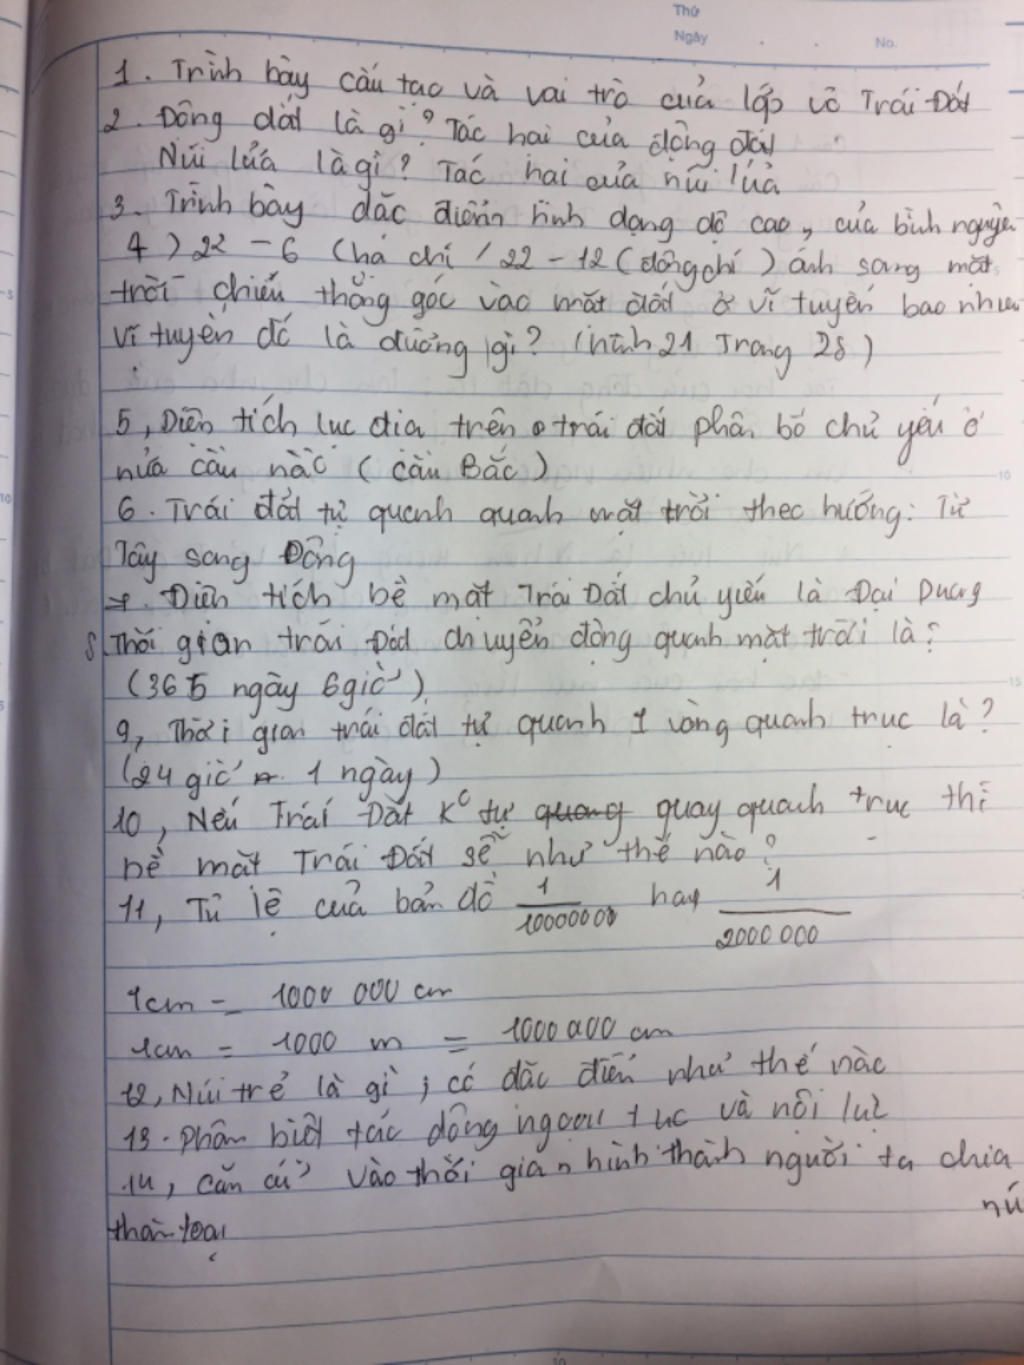 Thứ
Ngày . . No.
1. Trình bày cấu tạo và vai trò của lớp vỏ Trái Đất
2. Động đất là gì? Tác hại của động đất
Núi lửa là gì? Tác hại của núi lửa
3. Trình bày đặc điểm hình dạng độ cao, của bình nguyên
4) 22 - 6 (hạ chí / 22 - 12 (đông chí) ánh sang mặt
trời chiếu thẳng góc vào mặt đất ở vĩ tuyến bao nhiêu
vĩ tuyến đó là đường gì? (hình 21 Trang 28)
5, Diện tích lục địa trên trái đất phân bố chủ yếu ở
nửa cầu nào (cầu Bắc)
6. Trái đất tự quanh quanh mặt trời theo hướng: Từ
Tây sang Đông
7. Diện tích bề mặt Trái Đất chủ yếu là Đại Dương
8 Thời gian trái Đất chuyển động quanh mặt trời là?
(365 ngày 6 giờ)
9, Thời gian trái đất tự quanh 1 vòng quanh trục là?
(24 giờ 1 ngày)
10, Nếu Trái Đất Kº tự quang quay quanh trục thì
bề mặt Trái Đất sẽ như thế nào?
11, Tỉ lệ của bản đồ 1/10000000 hay 1/2000 000
1cm = 1000 000 cm
1cm = 1000 m = 1000 000 cm
12, Núi trẻ là gì, có đặc điểm như thế nào
13. Phân biệt tác động ngoại lực và nội lực
14, Căn cứ vào thời gian hình thành người ta chia
nú
thành loại